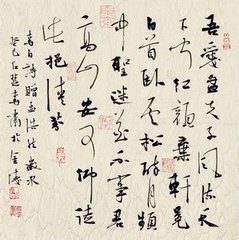 吾愛孟夫子風流天
下聞紅顏棄軒冕
白首卧松雲醉月頻
中聖迷花不事君
高山安可仰徒
此挹清芬
李白詩贈孟浩然歲次
癸巳於金陵